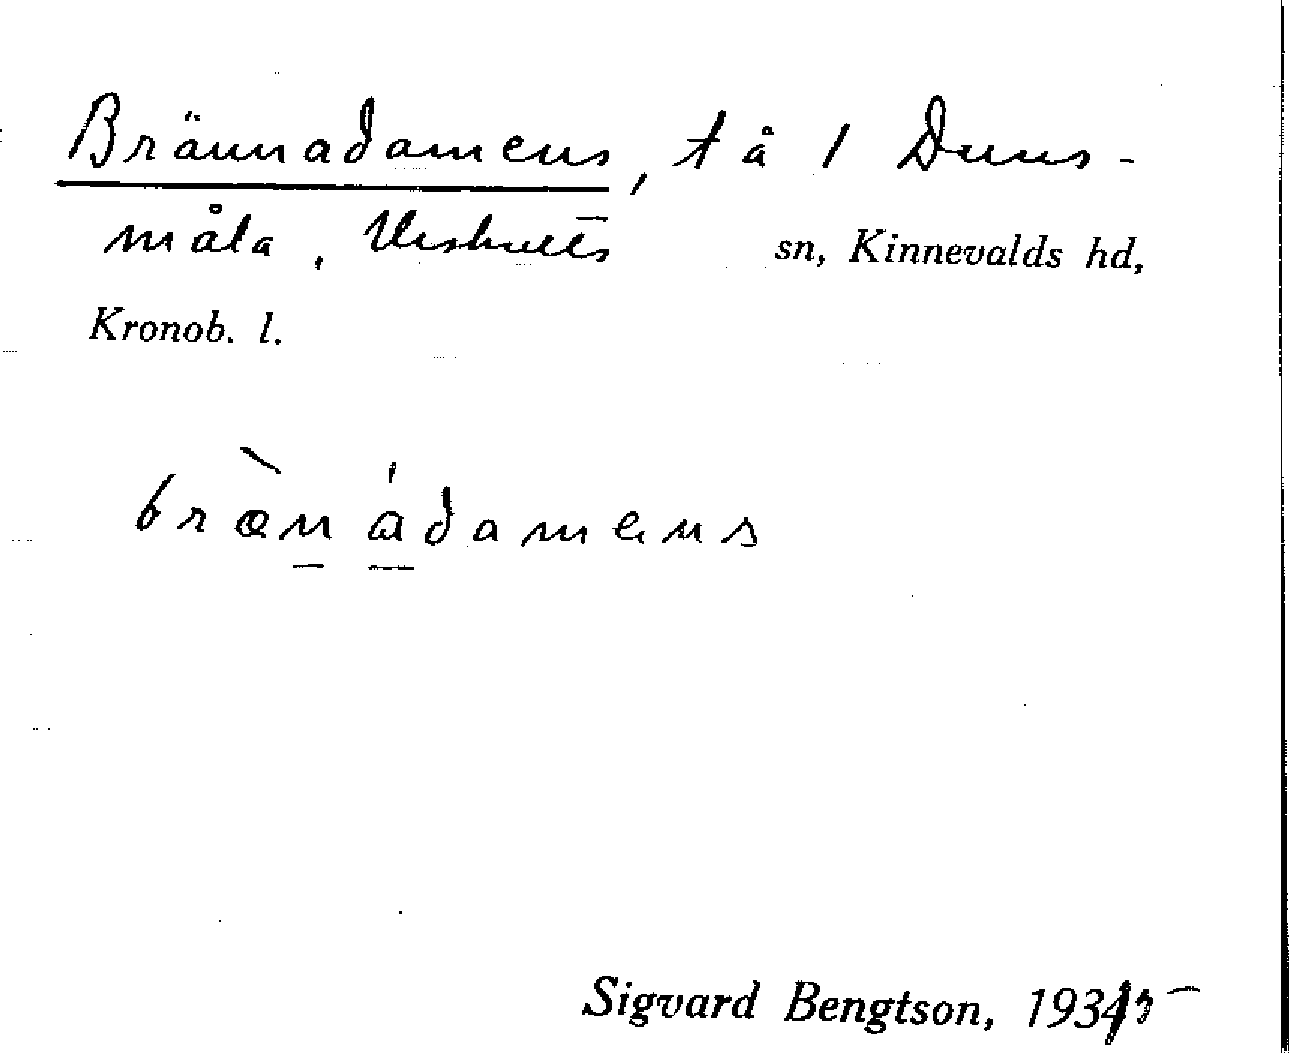 Brännadamens, tå i Duns-
måla, Urshults sn, Kinnevalds hd,
Kronob. l.
bræn ádamens
Sigvard Bengtson, 1935